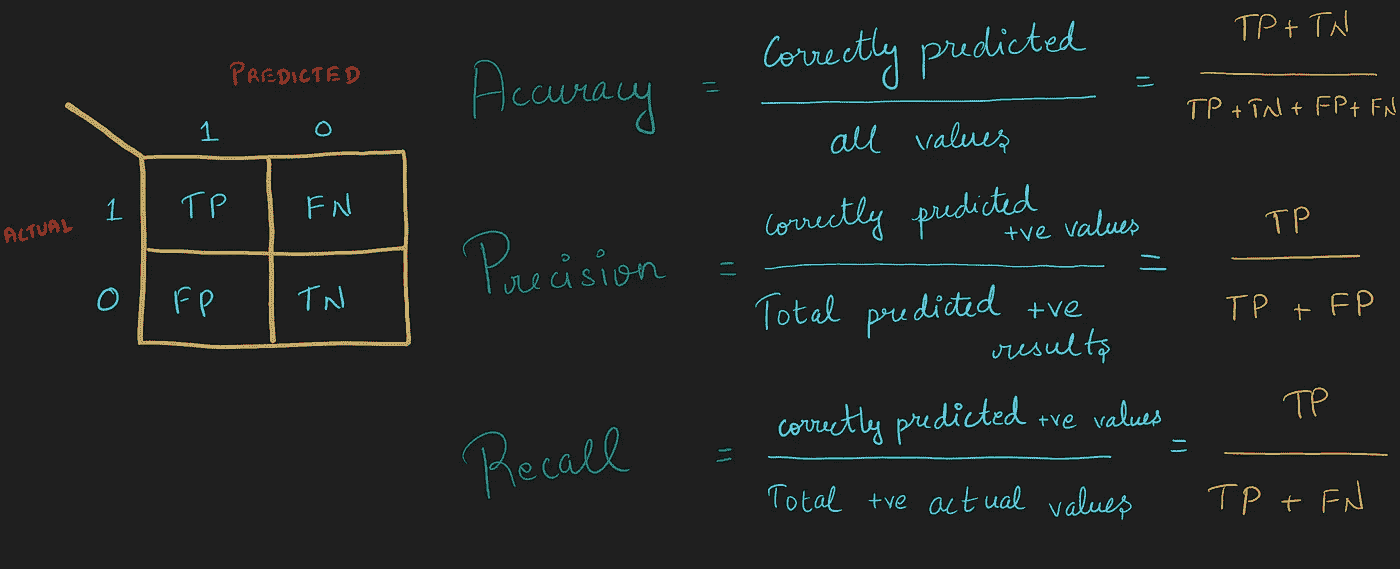 PREDICTED
1 0
ACTUAL
1 TP FN
0 FP TN
Accuracy = Correctly predicted = TP + TN
all values TP + TN + FP + FN
Precision = correctly predicted +ve values = TP
Total predicted +ve results TP + FP
Recall = correctly predicted +ve values = TP
Total +ve actual values TP + FN